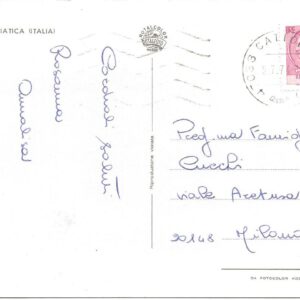 IATICA (ITALIA)
Cordiali saluti
Rosanna
Annalisa
Riproduzione vietata
Preg.ma Famigl
Cucchi
viale Aretusa
20148 Milano
DA FOTOCOLOR